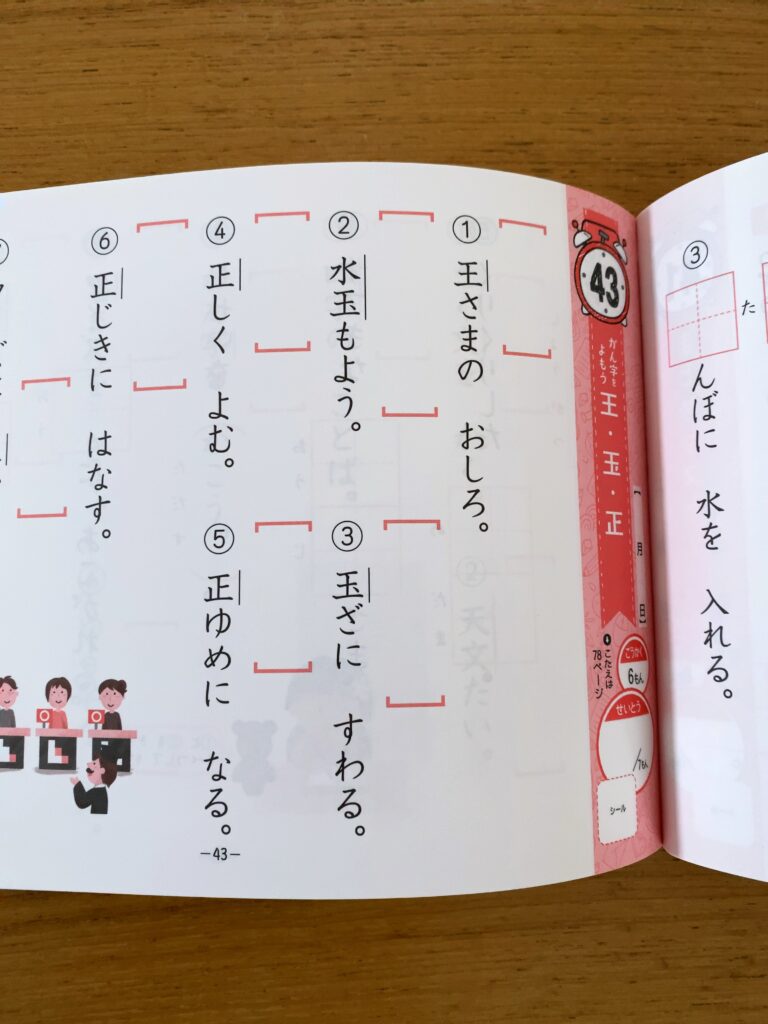 ③
た
んぼに 水を 入れる。
43
かん字を
よもう
王・玉・正
【 月 日】
こたえは
78ページ
ごうかく
6もん
せいとう
/7もん
シール
① 王さまの おしろ。
② 水玉もよう。
③ 玉ざに すわる。
④ 正しく よむ。
⑤ 正ゆめに なる。
⑥ 正じきに はなす。
—43—